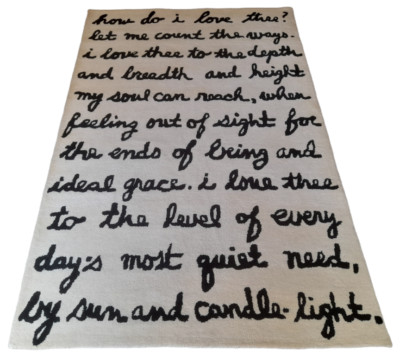 how do i love thee?
let me count the ways.
i love thee to the depth
and breadth and height
my soul can reach, when
feeling out of sight for
the ends of being and
ideal grace. i love thee
to the level of every
day's most quiet need,
by sun and candle-light.